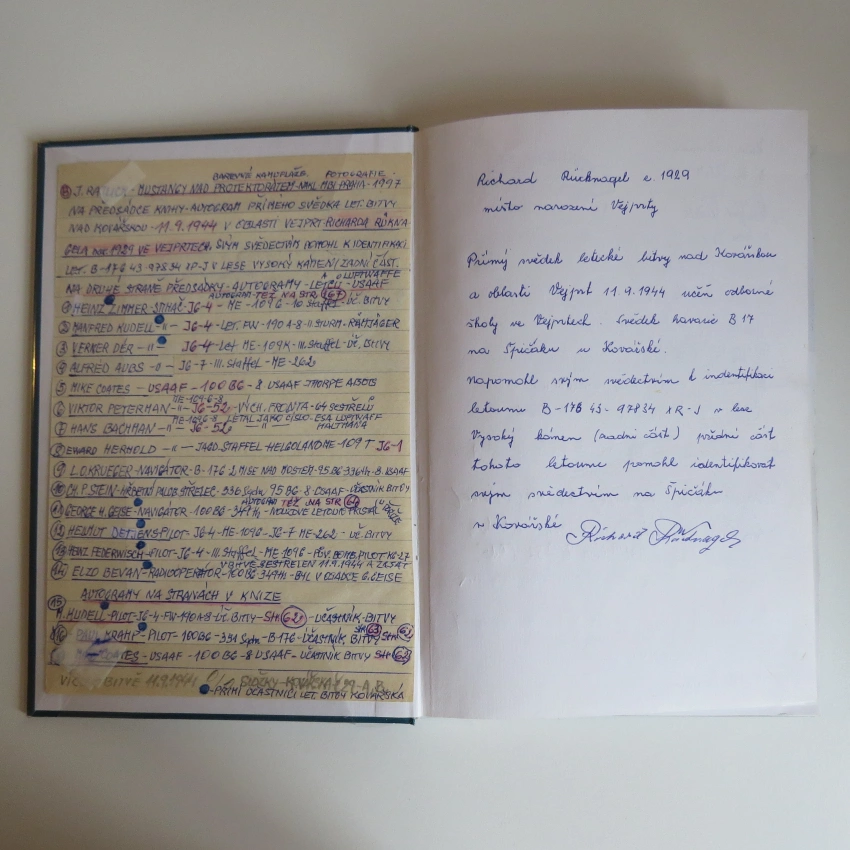 BAREVNÉ KAMUFLÁŽE. FOTOGRAFIE.
MUSTANGY NAD PROTEKTORÁTEM-NAKL. MBI PRAHA-1997
NA PŘEDSÁDCE KNIHY-AUTOGRAM PŘÍMÉHO SVĚDKA LET. BITVY
NAD KOVÁŘSKOU-11.9.1944 V OBLASTI VEJPRT-RICHARDA RÜKNA-
GELA nar. 1929 VE VEJPRTECH. SVÝM SVĚDECTVÍM POMOHL K IDENTIFIKACI
LET. B-17G 43-97834 V LESE VYSOKÝ KÁMEN/ZADNÍ ČÁST.
NA DRUHÉ STRANĚ PŘEDSÁDKY-AUTOGRAMY-LETCŮ-USAAF
A LUFTWAFFE
AUTOGRAM TÉŽ NA STR. 167
① HEINZ ZIMMER-STÍHAČ-JG-4-ME-109G-10 Staffel-ÚČ. BITVY
② MANFRED KUDELL-"-JG-4-LET. FW-190A-8-II STURM-RAMJÄGER
③ VERNER DĚR-"-JG-4-LET ME-109K-III. Staffel-ÚČ. BITVY
④ ALFRED AUBS-"-JG-7-III. Staffel-ME-262
⑤ MIKE COATES-USAAF-100BG-8 USAAF THORPE ABBOTS
ME-109G-8
⑥ VIKTOR PETERMAN-"-JG-52-VÝCH. FRONTA-64 SESTŘELŮ
ME-109G-8 LÉTAL JAKO ČÍSLO-ESA LUFTWAFF
⑦ HANS BACHMAN-"-JG-52 HALTMANA
⑧ EWARD HERHOLD-"-JAGD. STAFFEL-HELGOLAND ME-109T JG-1
⑨ L.O. KRUEGER-NAVIGÁTOR-B-17G 2 MÍSE NAD MOSTEM-95BG 336th-8. USAAF
⑩ CH. P. STEIN-HŘBETNÍ PALUB. STŘELEC-336 Sqdn. 95BG-8 USAAF-ÚČASTNÍK BITVY
AUTOGRAM TÉŽ NA STR. 64
⑪ GEORGE H. GEISE-NAVIGÁTOR-100BG-349th-NOUZOVĚ LETOUN PŘISTÁL
⑫ HELMUT DETJENS PILOT-JG-4-ME-109G-JG-7 ME-262-ÚČ. BITVY
⑬ HEINZ FEDERWISCH-PILOT-JG-4-III. Staffel-ME-109G-PŮV. BOMB. PILOT KG-27
V BITVĚ SESTŘELEN 11.9.1944 A ZAJAT
⑭ ELZO BEVAN-RADIOOPERÁTOR-100BG 349th-BYL V OSÁDCE G. GEISE
AUTOGRAMY NA STRANÁCH V KNIZE
⑮ M. KUDELL-PILOT-JG-4-FW-190A-8-ÚČ. BITVY Str. 62
⑯ PAUL KRAMP-PILOT-100BG-351 Sqdn-B-17G-ÚČASTNÍK BITVY Str. 63 Str. 61
COATES-USAAF-100BG-8 USAAF-ÚČASTNÍK BITVY Str. 62
BITVĚ 11.9.194
-PŘÍMÍ ÚČASTNÍCI LET. BITVY KOVÁŘSKÁ
Richard Rücknagel r. 1929
místo narození Vejprty
Přímý svědek letecké bitvy nad Kovářskou
a oblasti Vejprt 11.9.1944 učeň odborné
školy ve Vejprtech. Svědek havarie B 17
na Špičáku u Kovářské.
napomohl svým svědectvím k indentifikaci
letounu B-17G 43-97834 XR-J v lese
Vysoký kámen (zadní část) přední část
tohoto letounu pomohl identifikovat
svým svědectvím na Špičáku
v Kovářské Richard Rücknagel